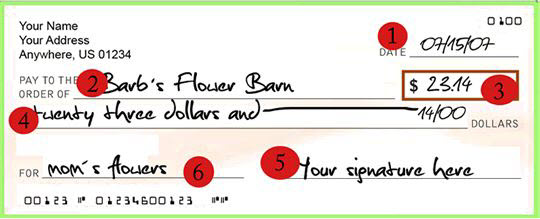 Your Name 0100
Your Address
Anywhere, US 01234
1 DATE 07/15/07
PAY TO THE ORDER OF 2 Barb's Flower Barn $ 23.14 3
4 twenty three dollars and 14/00 DOLLARS
FOR mom's flowers 6 5 Your signature here
00123 01234600123